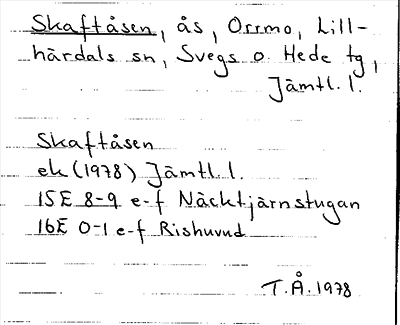 Skaftåsen, ås, Orrmo, Lill-
härdals sn, Svegs o. Hede tg,
Jämtl. l.
Skaftåsen
ek (1978) Jämtl. l.
15E 8-9 e-f Näcktjärnstugan
16E 0-1 e-f Rishuvud
T.Å. 1978